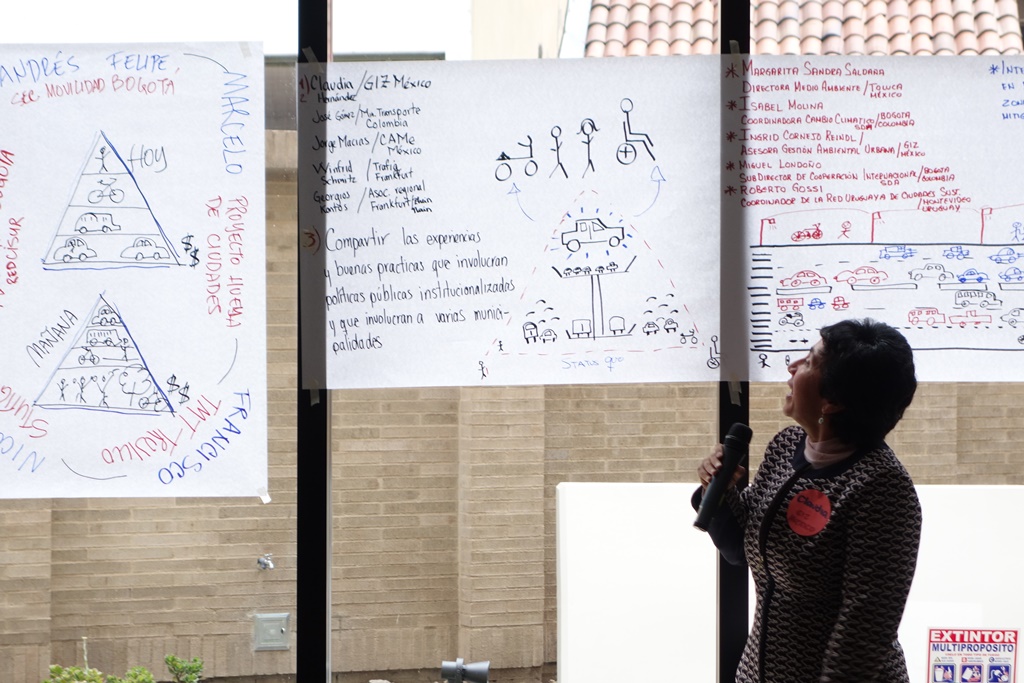 ANDRÉS FELIPE
SER MOVILIDAD BOGOTA
MARCELO
HOY
$
$
PROYECTO HUELLA
DE CIUDADES
MAÑANA
$
$
TMT-TRUJILLO
FRANCISCO
Claudia /GIZ México
Hernández
José Gómez/Min. Transporte
Colombia
Jorge Macias /CAMe
México
Winfrid / Trafiq
Schmitz Frankfurt
Georgios / Asoc. regional
Kontos Frankfurt
3) Compartir las experiencias
y buenas practicas que involucran
políticas públicas institucionalizadas
y que involucran a varias munici-
palidades
STATUS quo
* MARGARITA SANDRA SALDAÑA
DIRECTORA MEDIO AMBIENTE/TOLUCA
MÉXICO
* ISABEL MOLINA
COORDINADORA CAMBIO CLIMATICO/BOGOTA
SDA COLOMBIA
* INGRID CORNEJO REINDL
ASESORA GESTIÓN AMBIENTAL URBANA/GIZ
MÉXICO
* MIGUEL LONDOÑO
SUBDIRECTOR DE COOPERACIÓN INTERNACIONAL/BOGOTA
SDA COLOMBIA
* ROBERTO GOSSI
COORDINADOR DE LA RED URUGUAYA DE CIUDADES SUST.
/MONTEVIDEO
URUGUAY
Claudia
EXTINTOR
MULTIPROPOSITO